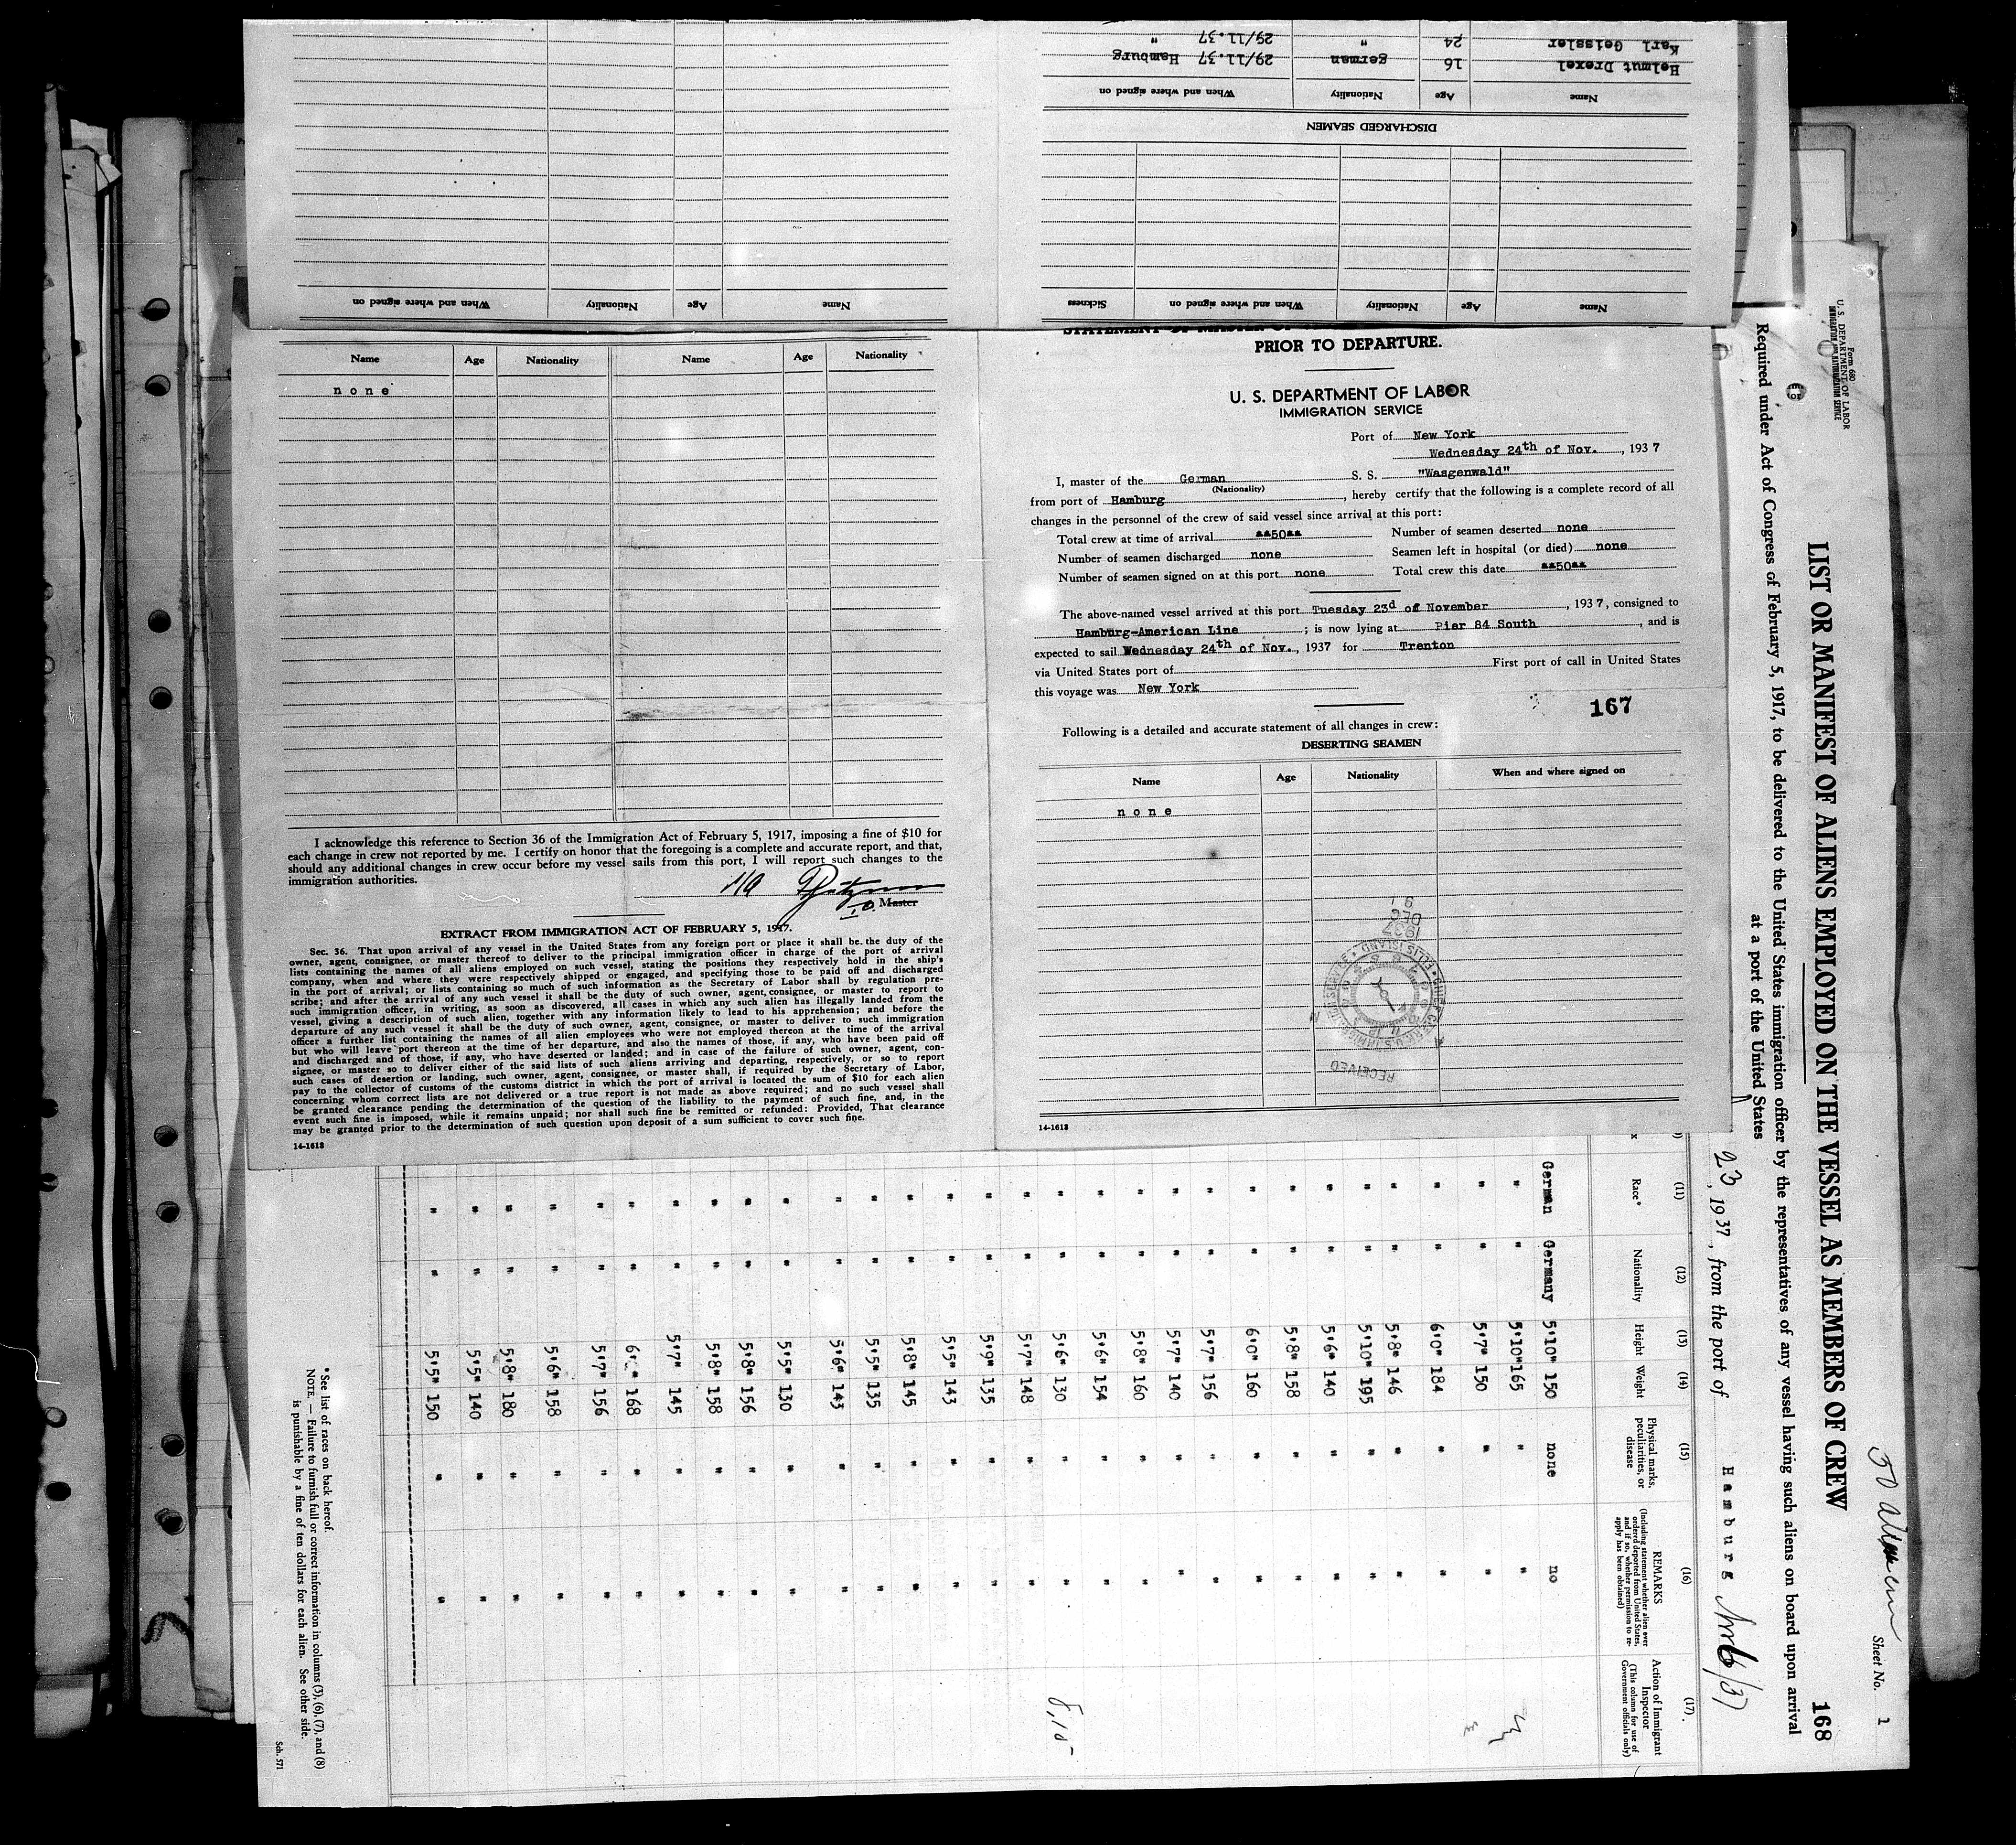 Karl Geissler 24 " 29/11.37 "
Helmut Drexel 16 german 29/11.37 Hamburg
Name Age Nationality When and where signed on
DISCHARGED SEAMEN
Name Age Nationality When and where signed on Sickness
Name Age Nationality When and where signed on
Name Age Nationality Name Age Nationality
none
I acknowledge this reference to Section 36 of the Immigration Act of February 5, 1917, imposing a fine of $10 for
each change in crew not reported by me. I certify on honor that the foregoing is a complete and accurate report, and that,
should any additional changes in crew occur before my vessel sails from this port, I will report such changes to the
immigration authorities.
I.O. Master
EXTRACT FROM IMMIGRATION ACT OF FEBRUARY 5, 1917.
Sec. 36. That upon arrival of any vessel in the United States from any foreign port or place it shall be the duty of the
owner, agent, consignee, or master thereof to deliver to the principal immigration officer in charge of the port of arrival
lists containing the names of all aliens employed on such vessel, stating the positions they respectively hold in the ship's
company, when and where they were respectively shipped or engaged, and specifying those to be paid off and discharged
in the port of arrival; or lists containing so much of such information as the Secretary of Labor shall by regulation pre-
scribe; and after the arrival of any such vessel it shall be the duty of such owner, agent, consignee, or master to report to
such immigration officer, in writing, as soon as discovered, all cases in which any such alien has illegally landed from the
vessel, giving a description of such alien, together with any information likely to lead to his apprehension; and before the
departure of any such vessel it shall be the duty of such owner, agent, consignee, or master to deliver to such immigration
officer a further list containing the names of all alien employees who were not employed thereon at the time of the arrival
but who will leave port thereon at the time of her departure, and also the names of those, if any, who have been paid off
and discharged and of those, if any, who have deserted or landed; and in case of the failure of such owner, agent, con-
signee, or master so to deliver either of the said lists of such aliens arriving and departing, respectively, or so to report
such cases of desertion or landing, such owner, agent, consignee, or master shall, if required by the Secretary of Labor,
pay to the collector of customs of the customs district in which the port of arrival is located the sum of $10 for each alien
concerning whom correct lists are not delivered or a true report is not made as above required; and no such vessel shall
be granted clearance pending the determination of the question of the liability to the payment of such fine, and, in the
event such fine is imposed, while it remains unpaid; nor shall such fine be remitted or refunded: Provided, That clearance
may be granted prior to the determination of such question upon deposit of a sum sufficient to cover such fine.
14-1618
PRIOR TO DEPARTURE.
U. S. DEPARTMENT OF LABOR
IMMIGRATION SERVICE
Port of New York
Wednesday 24th of Nov. , 1937
I, master of the German S. S. "Wasgenwald"
(Nationality)
from port of Hamburg , hereby certify that the following is a complete record of all
changes in the personnel of the crew of said vessel since arrival at this port:
Total crew at time of arrival **50** Number of seamen deserted none
Number of seamen discharged none Seamen left in hospital (or died) none
Number of seamen signed on at this port none Total crew this date **50**
The above-named vessel arrived at this port Tuesday 23d of November , 1937, consigned to
Hamburg-American Line ; is now lying at Pier 84 South , and is
expected to sail Wednesday 24th of Nov., 1937 for Trenton
via United States port of First port of call in United States
this voyage was New York
167
Following is a detailed and accurate statement of all changes in crew:
DESERTING SEAMEN
Name Age Nationality When and where signed on
none
DEC
1937
ELLIS ISLAND
RECEIVED
14-1618
Form 680
U. S. DEPARTMENT OF LABOR
IMMIGRATION AND NATURALIZATION SERVICE
Sheet No. 1
168
LIST OR MANIFEST OF ALIENS EMPLOYED ON THE VESSEL AS MEMBERS OF CREW
Required under Act of Congress of February 5, 1917, to be delivered to the United States immigration officer by the representatives of any vessel having such aliens on board upon arrival
at a port of the United States
23, 1937, from the port of Hamburg
(11) (12) (13) (14) (15) (16) (17)
Race* Nationality Height Weight Physical marks, peculiarities, or disease REMARKS (Including statement whether alien ever ordered deported from United States, and if so, whether permission to re-apply has been obtained) Action of Immigrant Inspector (This column for use of Government officials only)
German Germany 5'10" 150 none no
" " 5'10" 165 " "
" " 5'7" 150 " "
" " 6'0" 184 " "
" " 5'8" 146 " "
" " 5'10" 195 " "
" " 5'6" 140 " "
" " 5'8" 158 " "
" " 6'0" 160 " "
" " 5'7" 156 " "
" " 5'7" 140 " "
" " 5'8" 160 " "
" " 5'6" 154 " "
" " 5'6" 130 " "
" " 5'7" 148 " "
" " 5'9" 135 " "
" " 5'5" 143 " "
" " 5'8" 145 " "
" " 5'5" 135 " "
" " 5'6" 143 " "
" " 5'5" 130 " "
" " 5'8" 156 " "
" " 5'8" 158 " "
" " 5'7" 145 " "
" " 168 " "
" " 5'7" 156 " "
" " 5'6" 158 " "
" " 5'8" 180 " "
" " 5'5" 140 " "
" " 5'5" 150 " "
* See list of races on back hereof.
NOTE.—Failure to furnish full or correct information in columns (3), (6), (7), and (8)
is punishable by a fine of ten dollars for each alien. See other side.
Sch. 571